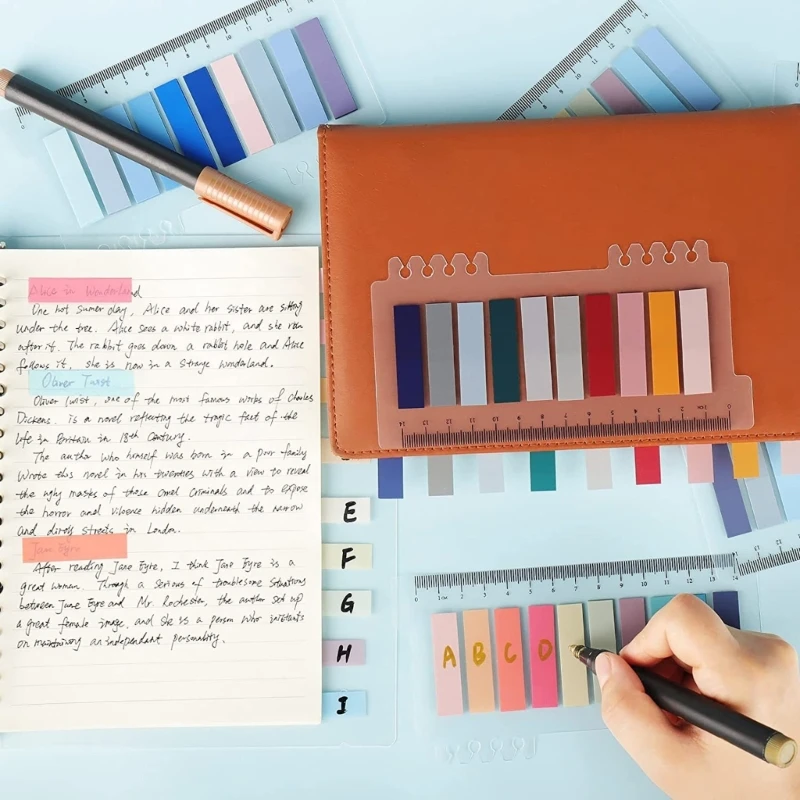 Alice in Wonderland
One hot sumer day, Alice and her sister are sitting
under the tree. Alice sees a white rabbit, and she run
after it. The rabbit goes down a rabbit hole and Alice
follows it, she is now in a strange wonderland.
Oliver Twist
Oliver Twist, one of the most famous works of Charles
Dickens. Is a novel reflecting the tragic fact of the
life in Britain in 18th Century.
The author who himself was born in a poor family
wrote this novel in his twenties with a view to reveal
the ugly masks of those cruel criminals and to expose
the horror and vilence hidden underneath the narrow
and dirty streets in London.
Jane Eyre
After reading Jane Eyre, I think Jane Eyre is a
great woman. Through a serious of troublesome situations
between Jane Eyre and Mr. Rochester, the author set up
a great female image, and she is a person who insistants
on maintaining an independant personality.
E
F
G
H
I
A B C D